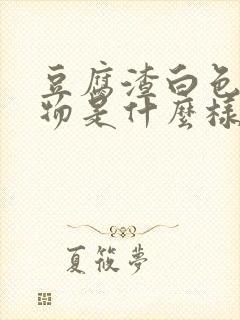 豆腐渣白色
物是什麼樣
夏筱夢